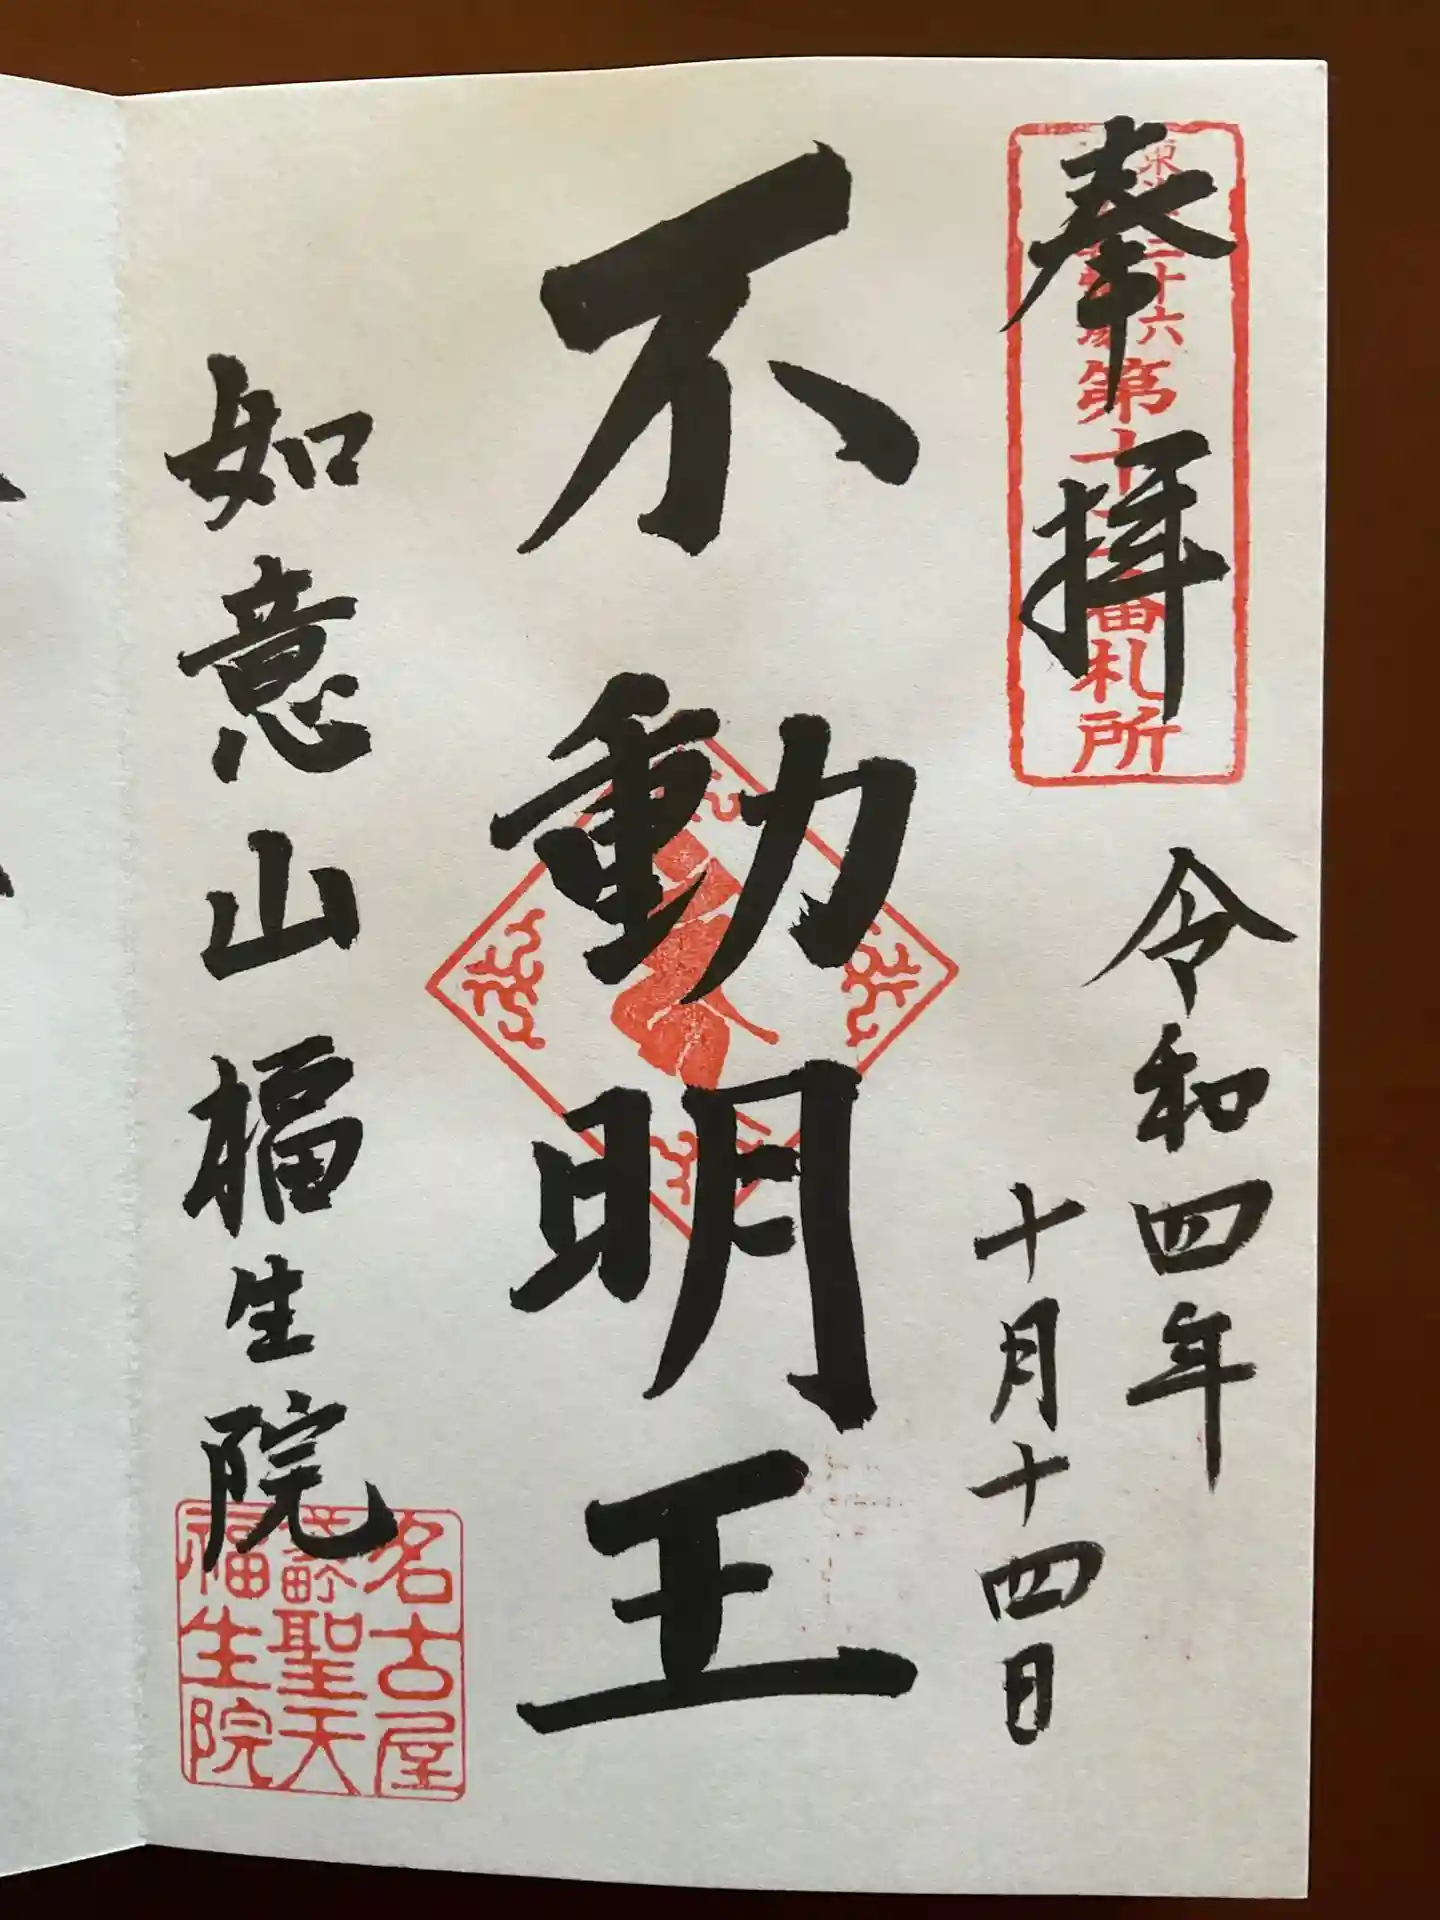 奉拝
三十六
第十番札所
令和四年
十月十四日
不動明王
如意山福生院
名古屋
聖天
福生院